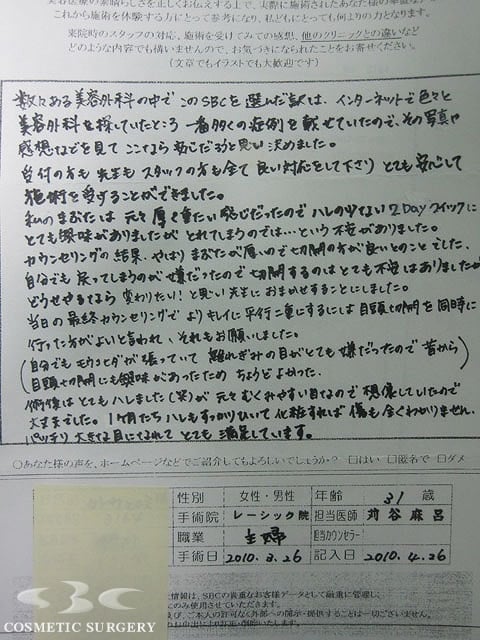 美容医療の素晴らしさを正しくお伝えする上で、実際に施術されたあなた様の
これから施術を体験する方にとって参考になり、私どもにとっても何よりの力となります。
来院時のスタッフの対応、施術を受けてみての感想、他のクリニックとの違いなど
どのような内容でも構いませんので、お気づきになられたことをお寄せください。
(文章でもイラストでも大歓迎です)
数々ある美容外科の中でこのSBCを選んだ訳は、インターネットで色々と
美容外科を探していたところ 一番多くの症例を載せていたので、その写真や
感想などを見て ここなら安心だろうと思い決めました。
受付の方も 先生も スタッフの方も全て良い対応をして下さり とても安心して
施術を受することができました。
私のまぶたは 元々厚く重たい感じだったのでハレの少ない 2Dayクイックに
とても興味がありましたが とれてしまうのでは…という不安がありました。
カウンセリングの結果、やはりまぶたが厚いので切開の方が良いとのことでした、
自分でも戻ってしまうのが嫌だったので 切開するのはとても不安はありましたが
どうせやるなら 変わりたい!と思い先生におまかせすることにしました。
当日の最終カウンセリングで よりキレイに平行二重にするには 目頭切開を同時に
行った方がよいと言われ、それもお願いしました。
(自分でもモウコヒダが張っていて 離れぎみの目がとても嫌だったので 昔から
目頭切開にも興味があったため ちょうどよかった。)
術後はとてもハレました(笑)が 元々むくみやすい目なので 想像していたので
大丈夫でした。1ヶ月たち ハレもすっかりひいて 化粧すれば 傷も全くわかりません。
パッチリ 大きな目になれて とても 満足しています。
○あなた様の声を、ホームページなどでご紹介してもよろしいでしょうか? □はい □匿名で □ダメ
性別 女性・男性 年齢 31 歳
手術院 レーシック院 担当医師 苅谷 麻呂
職業 主婦 担当カウンセラー
手術日 2010.3.26 記入日 2010.4.26
情報は、SBCの貴重なお客様データとして厳重に管理し、
にのみ使用させていただきます。
及び、ご本人の許可なく外部への開示・提供することは一切ございません。
SBC
COSMETIC SURGERY